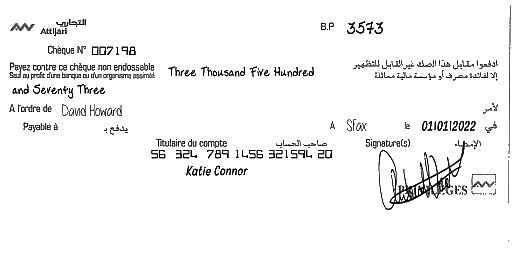 التجاري
Attijari
B.P 3573
Chèque N° 007198
Payez contre ce chèque non endossable
Sauf au profit d'une banque ou d'un organisme assimilé
Three Thousand Five Hundred
ادفعوا مقابل هذا الصك غير القابل للتظهير
إلا لفائدة مصرف أو مؤسسة مالية مماثلة
and Seventy Three
A l'ordre de David Howard لأمر
Payable à يدفع بـ
A Sfax le 01/01/2022 في
Titulaire du compte صاحب الحساب
Signature(s) الإمضاء
56 324 789 1456 321594 20
Katie Connor
PRIVILEGES